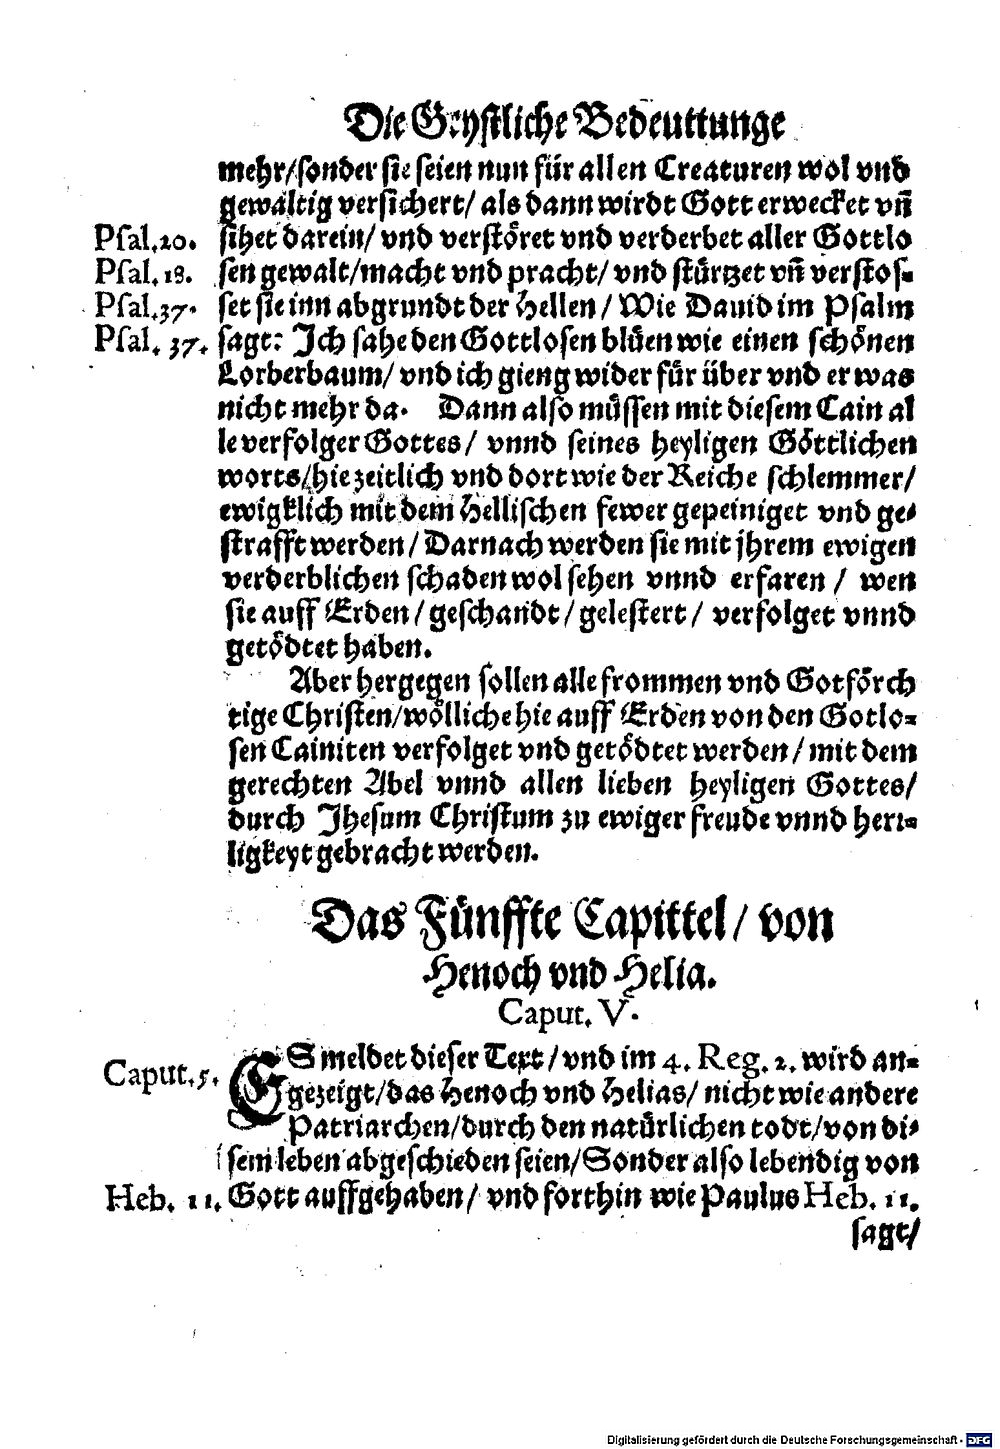 Die Geystliche Bedeuttunge
mehr/sonder sie seien nun für allen Creaturen wol vnd
gewaltig versichert/ als dann wirdt Gott erwecket vñ
Psal.20. sihet darein/ vnd verstöret vnd verderbet aller Gottlo
Psal.18. sen gewalt/macht vnd pracht/ vnd stürtzet vñ verstos-
Psal.37. set sie inn abgrundt der Hellen/ Wie Dauid im Psalm
Psal. 37. sagt: Ich sahe den Gottlosen blüen wie einen schönen
Lorberbaum/ vnd ich gieng wider für über vnd er was
nicht mehr da. Dann also müssen mit diesem Cain al
le verfolger Gottes/ vnnd seines heyligen Göttlichen
worts/hie zeitlich vnd dort wie der Reiche schlemmer/
ewigklich mit dem Hellischen fewer gepeiniget vnd ge-
strafft werden/ Darnach werden sie mit jhrem ewigen
verderblichen schaden wol sehen vnnd erfaren/ wen
sie auff Erden/ geschandt/ gelestert/ verfolget vnnd
getödtet haben.
Aber hergegen sollen alle frommen vnd Gotförch
tige Christen/wölliche hie auff Erden von den Gotlo-
sen Cainiten verfolget vnd getödtet werden/ mit dem
gerechten Abel vnnd allen lieben heyligen Gottes/
durch Jhesum Christum zu ewiger freude vnnd herr-
ligkeyt gebracht werden.
Das Fünffte Capittel/ von
Henoch vnd Helia.
Caput. V.
Caput.5. ES meldet dieser Text/ vnd im 4. Reg. 2. wird an-
gezeigt/das Henoch vnd Helias/ nicht wie andere
Patriarchen/durch den natürlichen todt/von di-
sem leben abgeschieden seien/Sonder also lebendig von
Heb. 11. Gott auffgehaben/ vnd forthin wie Paulus Heb. 11.
sagt/
Digitalisierung gefördert durch die Deutsche Forschungsgemeinschaft - DFG